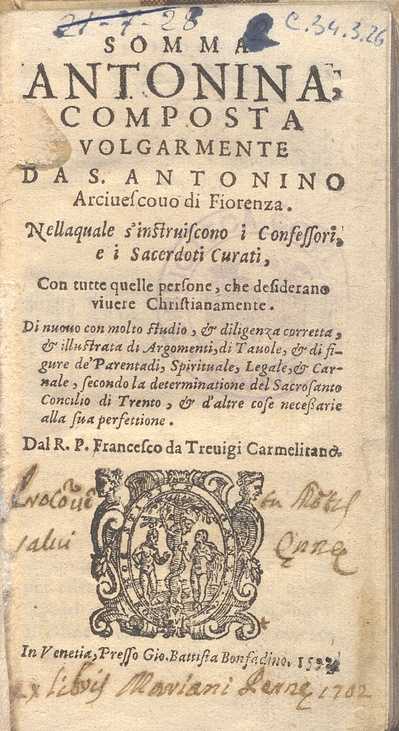 21-7-28 C.34.3.26
SOMMA
ANTONINA,
COMPOSTA
VOLGARMENTE
DA S. ANTONINO
Arciuescouo di Fiorenza.
Nellaquale s'instruiscono i Confessori,
e i Sacerdoti Curati,
Con tutte quelle persone, che desiderano
viuere Christianamente.
Di nuouo con molto studio, & diligenza corretta,
& illustrata di Argomenti, di Tauole, & di fi-
gure de' Parentadi, Spirituale, Legale, & Car-
nale, secondo la determinatione del Sacrosanto
Concilio di Trento, & d'altre cose necessarie
alla sua perfettione.
Dal R. P. Francesco da Treuigi Carmelitano.
In Venetia, Presso Gio. Battista Bonfadino.
ex libris Mariani 1702